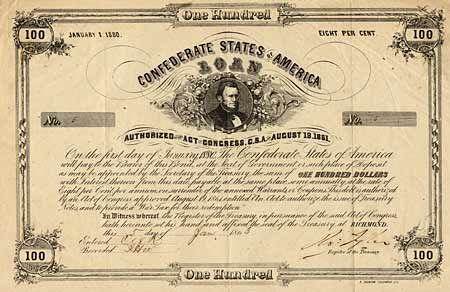 One Hundred
100 JANUARY 1. 1880. EIGHT PER CENT. 100
CONFEDERATE STATES OF AMERICA
LOAN
No. No.
AUTHORIZED BY ACT OF CONGRESS, C.S.A. OF AUGUST 19. 1861.
On the first day of January 1880, The Confederate States of America
will pay to the Bearer of this Bond, at the Seat of Government, or such place of Deposit
as may be appointed by the Secretary of the Treasury, the sum of ONE HUNDRED DOLLARS
with Interest thereon from this date payable at the same place, semi annually, at the rate of
Eight per Cent per annum, on surrender of the annexed Warrants or Coupons. This debt is authorized
by an Act of Congress approved August 19. 1861, entitled An Act to authorize the issue of Treasury
Notes, and to provide a War Tax for their redemption.
In Witness whereof, the Register of the Treasury, in pursuance of the said Act of Congress,
hath hereunto set his hand and affixed the seal of the Treasury at RICHMOND.
this day of Jan.
Entered
Recorded
Register of the Treasury.
100 100
One Hundred